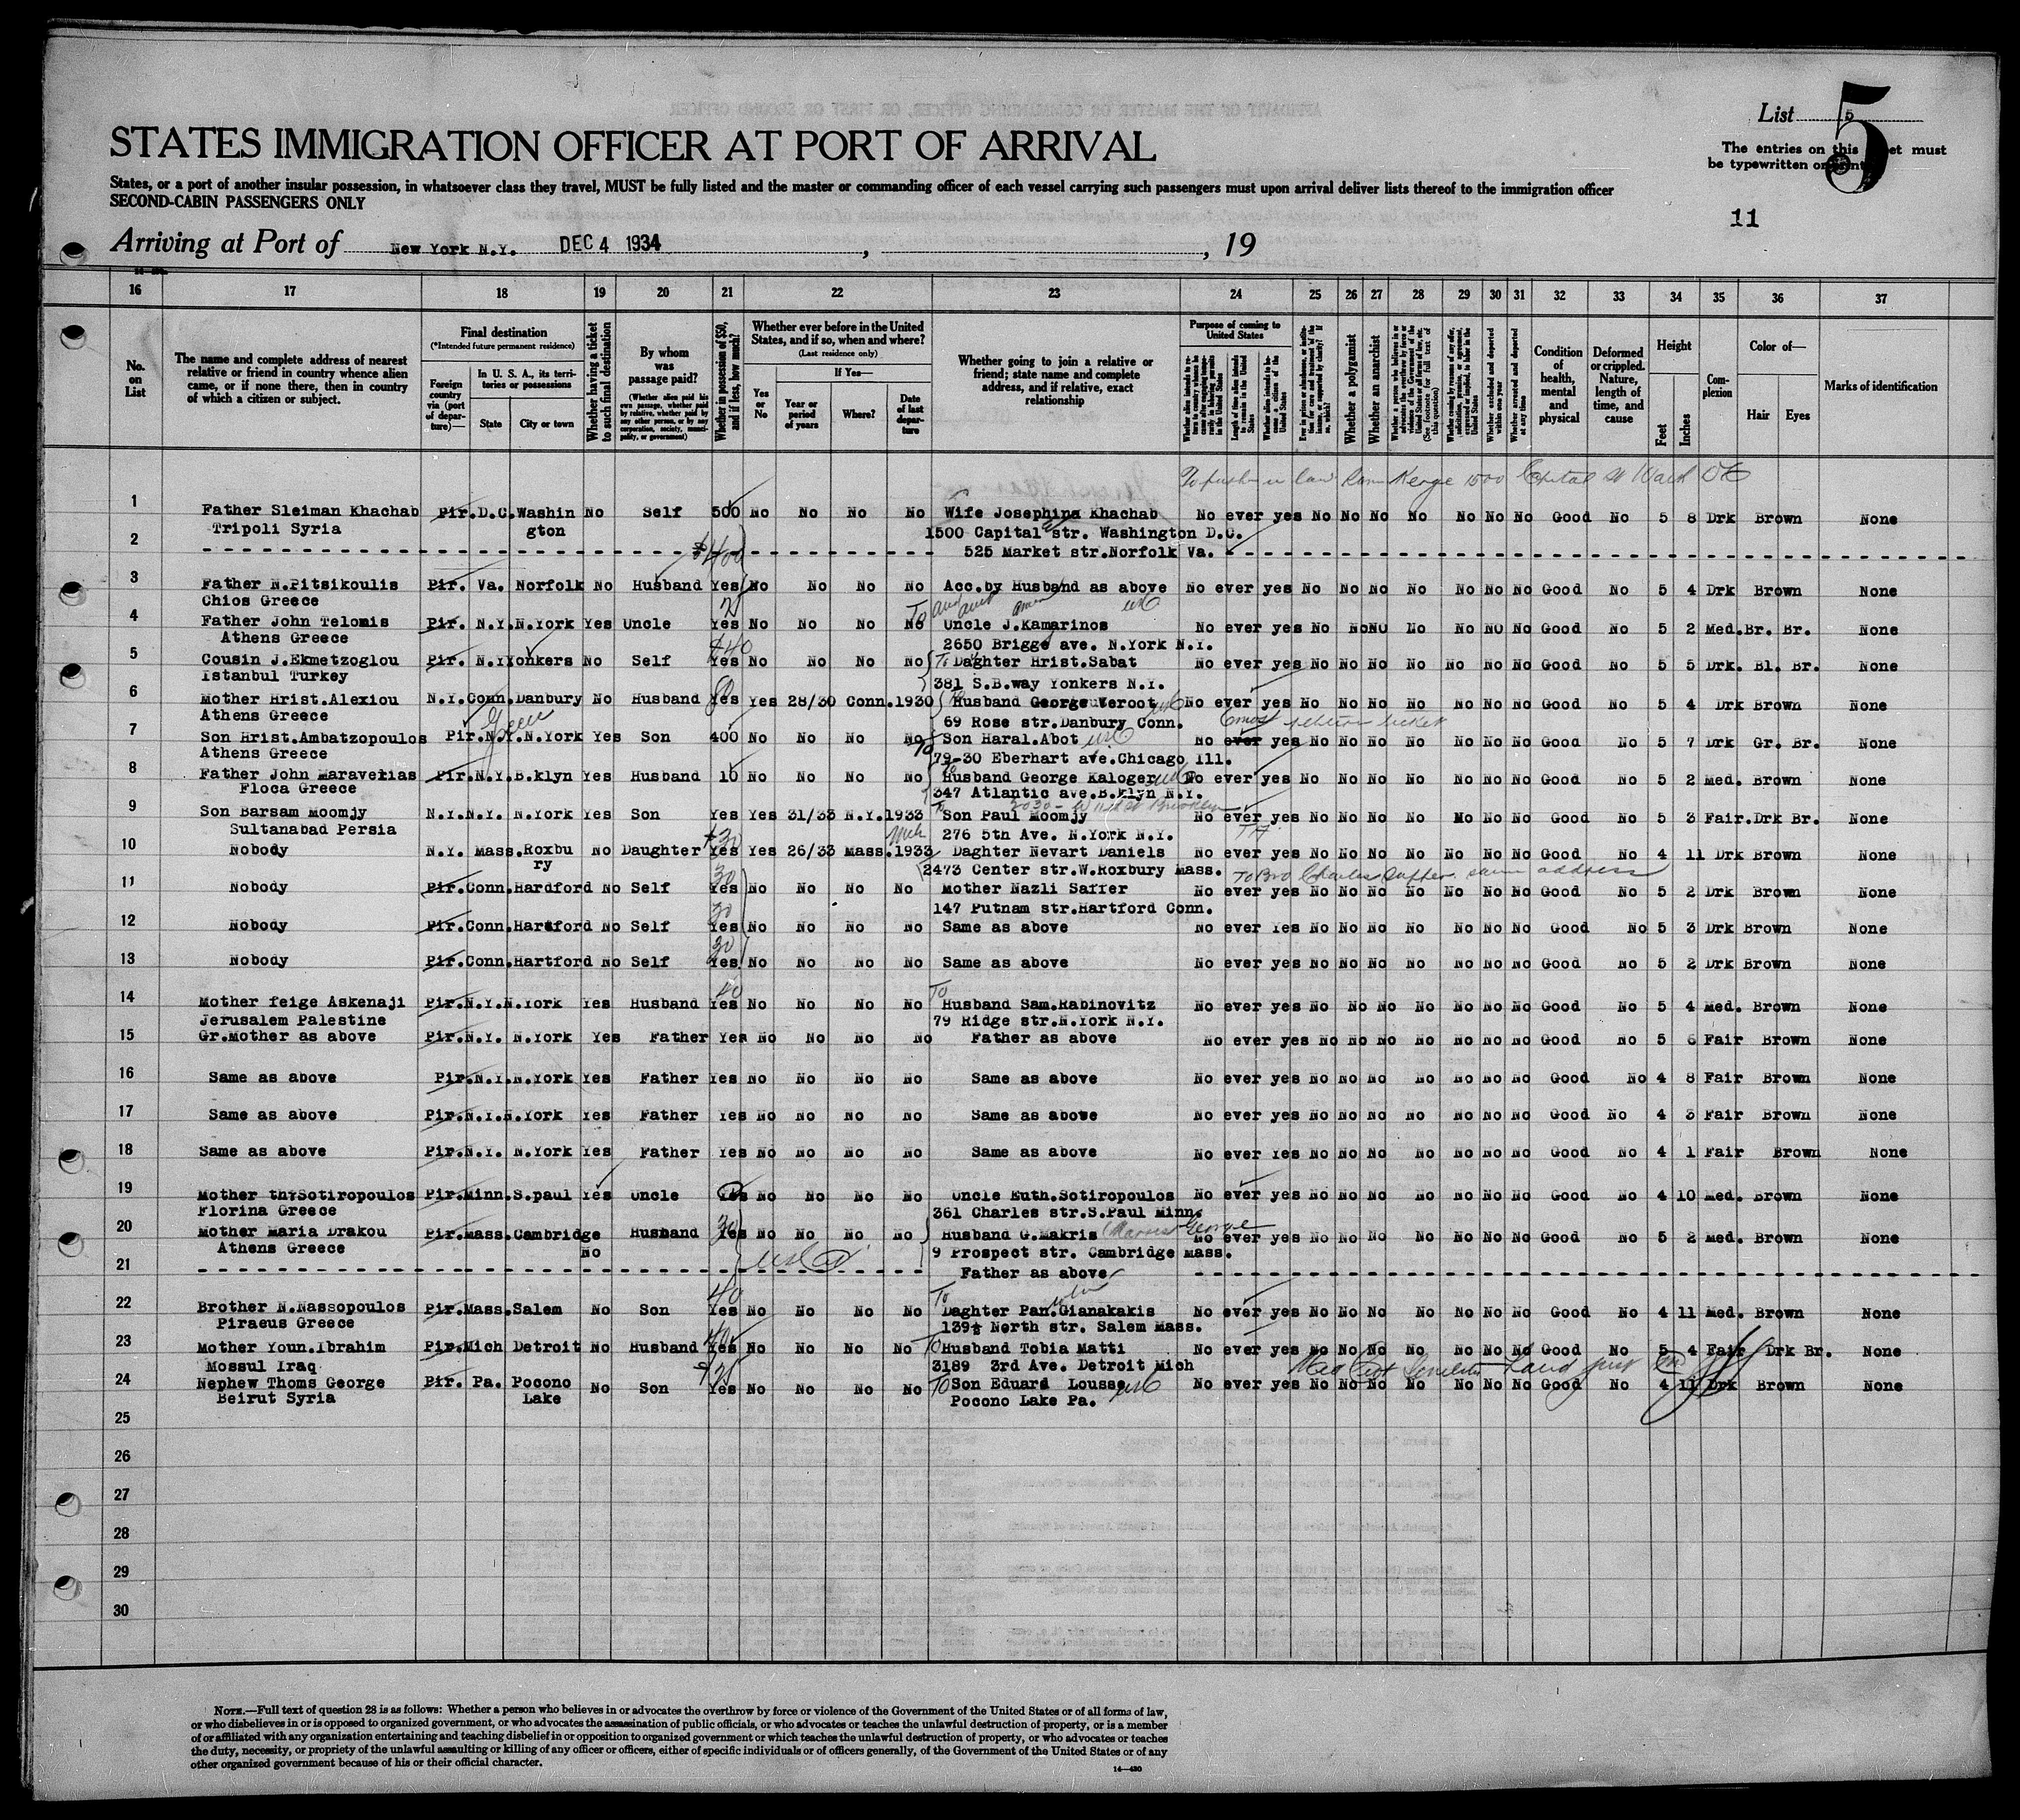 List 5
5
STATES IMMIGRATION OFFICER AT PORT OF ARRIVAL
The entries on this sheet must
be typewritten or printed
States, or a port of another insular possession, in whatsoever class they travel, MUST be fully listed and the master or commanding officer of each vessel carrying such passengers must upon arrival deliver lists thereof to the immigration officer
SECOND-CABIN PASSENGERS ONLY
11
Arriving at Port of New York N.Y. DEC 4 1934 , , 19
16 17 18 19 20 21 22 23 24 25 26 27 28 29 30 31 32 33 34 35 36 37
No. on List
The name and complete address of nearest relative or friend in country whence alien came, or if none there, then in country of which a citizen or subject.
Final destination
(*Intended future permanent residence)
Foreign country via (port of departure)—
In U. S. A., its territories or possessions
State City or town
Whether having a ticket to such final destination
By whom was passage paid?
(Whether alien paid his own passage, whether paid by relative, whether paid by any other person, or by any corporation, society, municipality, or government)
Whether in possession of $50, and if less, how much?
Whether ever before in the United States, and if so, when and where?
(Last residence only)
Yes or No
If Yes—
Year or period of years Where? Date of last departure
Whether going to join a relative or friend; state name and complete address, and if relative, exact relationship
Purpose of coming to United States
Whether a polygamist
Whether an anarchist
Condition of health, mental and physical
Deformed or crippled. Nature, length of time, and cause
Height
Feet Inches
Complexion
Color of—
Hair Eyes
Marks of identification
1 Father Sleiman Khachab Pir. D.C. Washin No Self 500 No No No No Wife Josephina Khachab No ever yes No No No No No No No Good No 5 8 Drk Brown None
Tripoli Syria gton 1500 Capital str. Washington D.C.
2 $400 525 Market str.Norfolk Va.
3 Father N.Pitsikoulis Pir. Va. Norfolk No Husband Yes No No No No Acc.by Husband as above No ever yes No No No No No No No Good No 5 4 Drk Brown None
Chios Greece
4 Father John Telomis Pir. N.Y. N.York Yes Uncle Yes No No No No Uncle J.Kamarinos No ever yes No No No No No No No Good No 5 2 Med. Br. Br. None
Athens Greece 2650 Briggs ave. N.York N.Y.
5 Cousin J.Ekmetzoglou Pir. N.Y. Yonkers No Self Yes No No No No To Daghter Hrist.Sabat No ever yes No No No No No No No Good No 5 5 Drk. Bl. Br. None
Istanbul Turkey 381 S.B.way Yonkers N.Y.
6 Mother Hrist.Alexiou N.Y. Conn. Danbury No Husband Yes Yes 28/30 Conn. 1930 Husband George Veroot No ever yes No No No No No No No Good No 5 4 Drk Brown None
Athens Greece 69 Rose str.Danbury Conn.
7 Son Hrist.Ambatzopoulos Pir. N.Y. N.York Yes Son 400 No No No No Son Haral.Abot No ever yes No No No No No No No Good No 5 7 Drk Gr. Br. None
Athens Greece 79-30 Eberhart ave.Chicago Ill.
8 Father John Maravelias Pir. N.Y. B.klyn Yes Husband 10 No No No No Husband George Kaloger No ever yes No No No No No No No Good No 5 2 Med. Brown None
Floca Greece 347 Atlantic ave.B.klyn N.Y.
9 Son Barsam Moomjy N.Y. N.Y. N.York Yes Son Yes Yes 31/33 N.Y. 1933 Son Paul Moomjy No ever yes No No No No No No No Good No 5 3 Fair. Drk Br. None
Sultanabad Persia 276 5th Ave. N.York N.Y.
10 Nobody N.Y. Mass. Roxbu No Daughter Yes Yes 26/33 Mass. 1933 Daghter Nevart Daniels No ever yes No No No No No No No Good No 4 11 Drk Brown None
ry 2473 Center str.W.Roxbury Mass.
To Bro Charles Saffer same address
11 Nobody Pir. Conn. Hardford No Self Yes No No No No Mother Nazli Saffer No ever yes No No No No No No No Good No 5 2 Drk Brown None
147 Putnam str.Hartford Conn.
12 Nobody Pir. Conn. Hartford No Self Yes No No No No Same as above No ever Yes No No No No No No No Good No 5 3 Drk Brown None
13 Nobody Pir. Conn. Hartford No Self Yes No No No No Same as above No ever yes No No No No No No No Good No 5 2 Drk Brown None
14 Mother feige Askenaji Pir. N.Y. N.York Yes Husband Yes No No No No To Husband Sam.Rabinovitz No ever yes No No No No No No No Good No 5 4 Med. Brown None
Jerusalem Palestine 79 Ridge str.N.York N.Y.
15 Gr.Mother as above Pir. N.Y. N.York Yes Father Yes No No No No Father as above No ever yes No No No No No No No Good No 5 6 Fair Brown None
16 Same as above Pir. N.Y. N.York Yes Father Yes No No No No Same as above No ever yes No No No No No No No Good No 4 8 Fair Brown None
17 Same as above Pir. N.Y. N.York Yes Father Yes No No No No Same as above No ever yes No No No No No No No Good No 4 3 Fair Brown None
18 Same as above Pir. N.Y. N.York Yes Father Yes No No No No Same as above No ever Yes No No No No No No No Good No 4 1 Fair Brown None
19 Mother th.Sotiropoulos Pir. Minn. S.paul Yes Uncle Yes No No No No Uncle Euth.Sotiropoulos No ever yes No No No No No No No Good No 4 10 Med. Brown None
Florina Greece 361 Charles str.S.Paul Minn.
20 Mother Maria Drakou Pir. Mass. Cambridge Husband Yes No No No No Husband G.Makris George No ever yes No No No No No No No Good No 5 2 Med. Brown None
Athens Greece No 9 Prospect str. Cambridge Mass.
21 Father as above
22 Brother N.Nassopoulos Pir. Mass. Salem No Son Yes No No No No To Daghter Pan.Gianakakis No ever yes No No No No No No No Good No 4 11 Med. Brown None
Piraeus Greece 139½ North str. Salem Mass.
23 Mother Youn.Ibrahim Pir. Mich Detroit No Husband Yes No No No No To Husband Tobia Matti No ever yes No No No No No No No Good No 5 4 Fair Drk Br. None
Mossul Iraq 3189 3rd Ave. Detroit Mich
24 Nephew Thoms George Pir. Pa. Pocono No Son Yes No No No No To Son Eduard Lousse No ever yes No No No No No No No Good No 4 11 Drk Brown None
Beirut Syria Lake Pocono Lake Pa.
25
26
27
28
29
30
NOTE.—Full text of question 28 is as follows: Whether a person who believes in or advocates the overthrow by force or violence of the Government of the United States or of all forms of law,
or who disbelieves in or is opposed to organized government, or who advocates the assassination of public officials, or who advocates or teaches the unlawful destruction of property, or is a member
of or affiliated with any organization entertaining and teaching disbelief in or opposition to organized government or which teaches the unlawful destruction of property, or who advocates or teaches
the duty, necessity, or propriety of the unlawful assaulting or killing of any officer or officers, either of specific individuals or of officers generally, of the Government of the United States or of any
other organized government because of his or their official character.
14—430